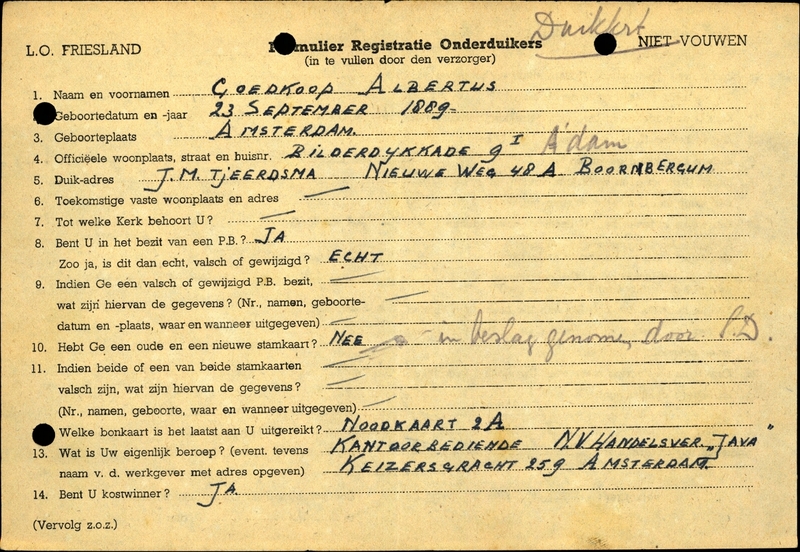 Duikkert
L.O. FRIESLAND Formulier Registratie Onderduikers NIET VOUWEN
(in te vullen door den verzorger)
1. Naam en voornamen GOEDKOOP ALBERTUS
Geboortedatum en -jaar 23 SEPTEMBER 1889-
3. Geboorteplaats AMSTERDAM.
4. Officiëele woonplaats, straat en huisnr. BILDERDYKKADE 9 I A'dam
5. Duik-adres J.M. TJEERDSMA NIEUWE WEG 48 A BOORNBERGUM
6. Toekomstige vaste woonplaats en adres
7. Tot welke Kerk behoort U?
8. Bent U in het bezit van een P.B.? JA
Zoo ja, is dit dan echt, valsch of gewijzigd? ECHT
9. Indien Ge een valsch of gewijzigd P.B. bezit,
wat zijn hiervan de gegevens? (Nr., namen, geboorte-
datum en -plaats, waar en wanneer uitgegeven)
10. Hebt Ge een oude en een nieuwe stamkaart? NEE - in beslag genome, door S.D.
11. Indien beide of een van beide stamkaarten
valsch zijn, wat zijn hiervan de gegevens?
(Nr., namen, geboorte, waar en wanneer uitgegeven)
Welke bonkaart is het laatst aan U uitgereikt? NOODKAART 2A
13. Wat is Uw eigenlijk beroep? (event. tevens KANTOORBEDIENDE N.V. HANDELSVER. „JAVA"
naam v. d. werkgever met adres opgeven) KEIZERSGRACHT 259 AMSTERDAM.
14. Bent U kostwinner? JA
(Vervolg z.o.z.)